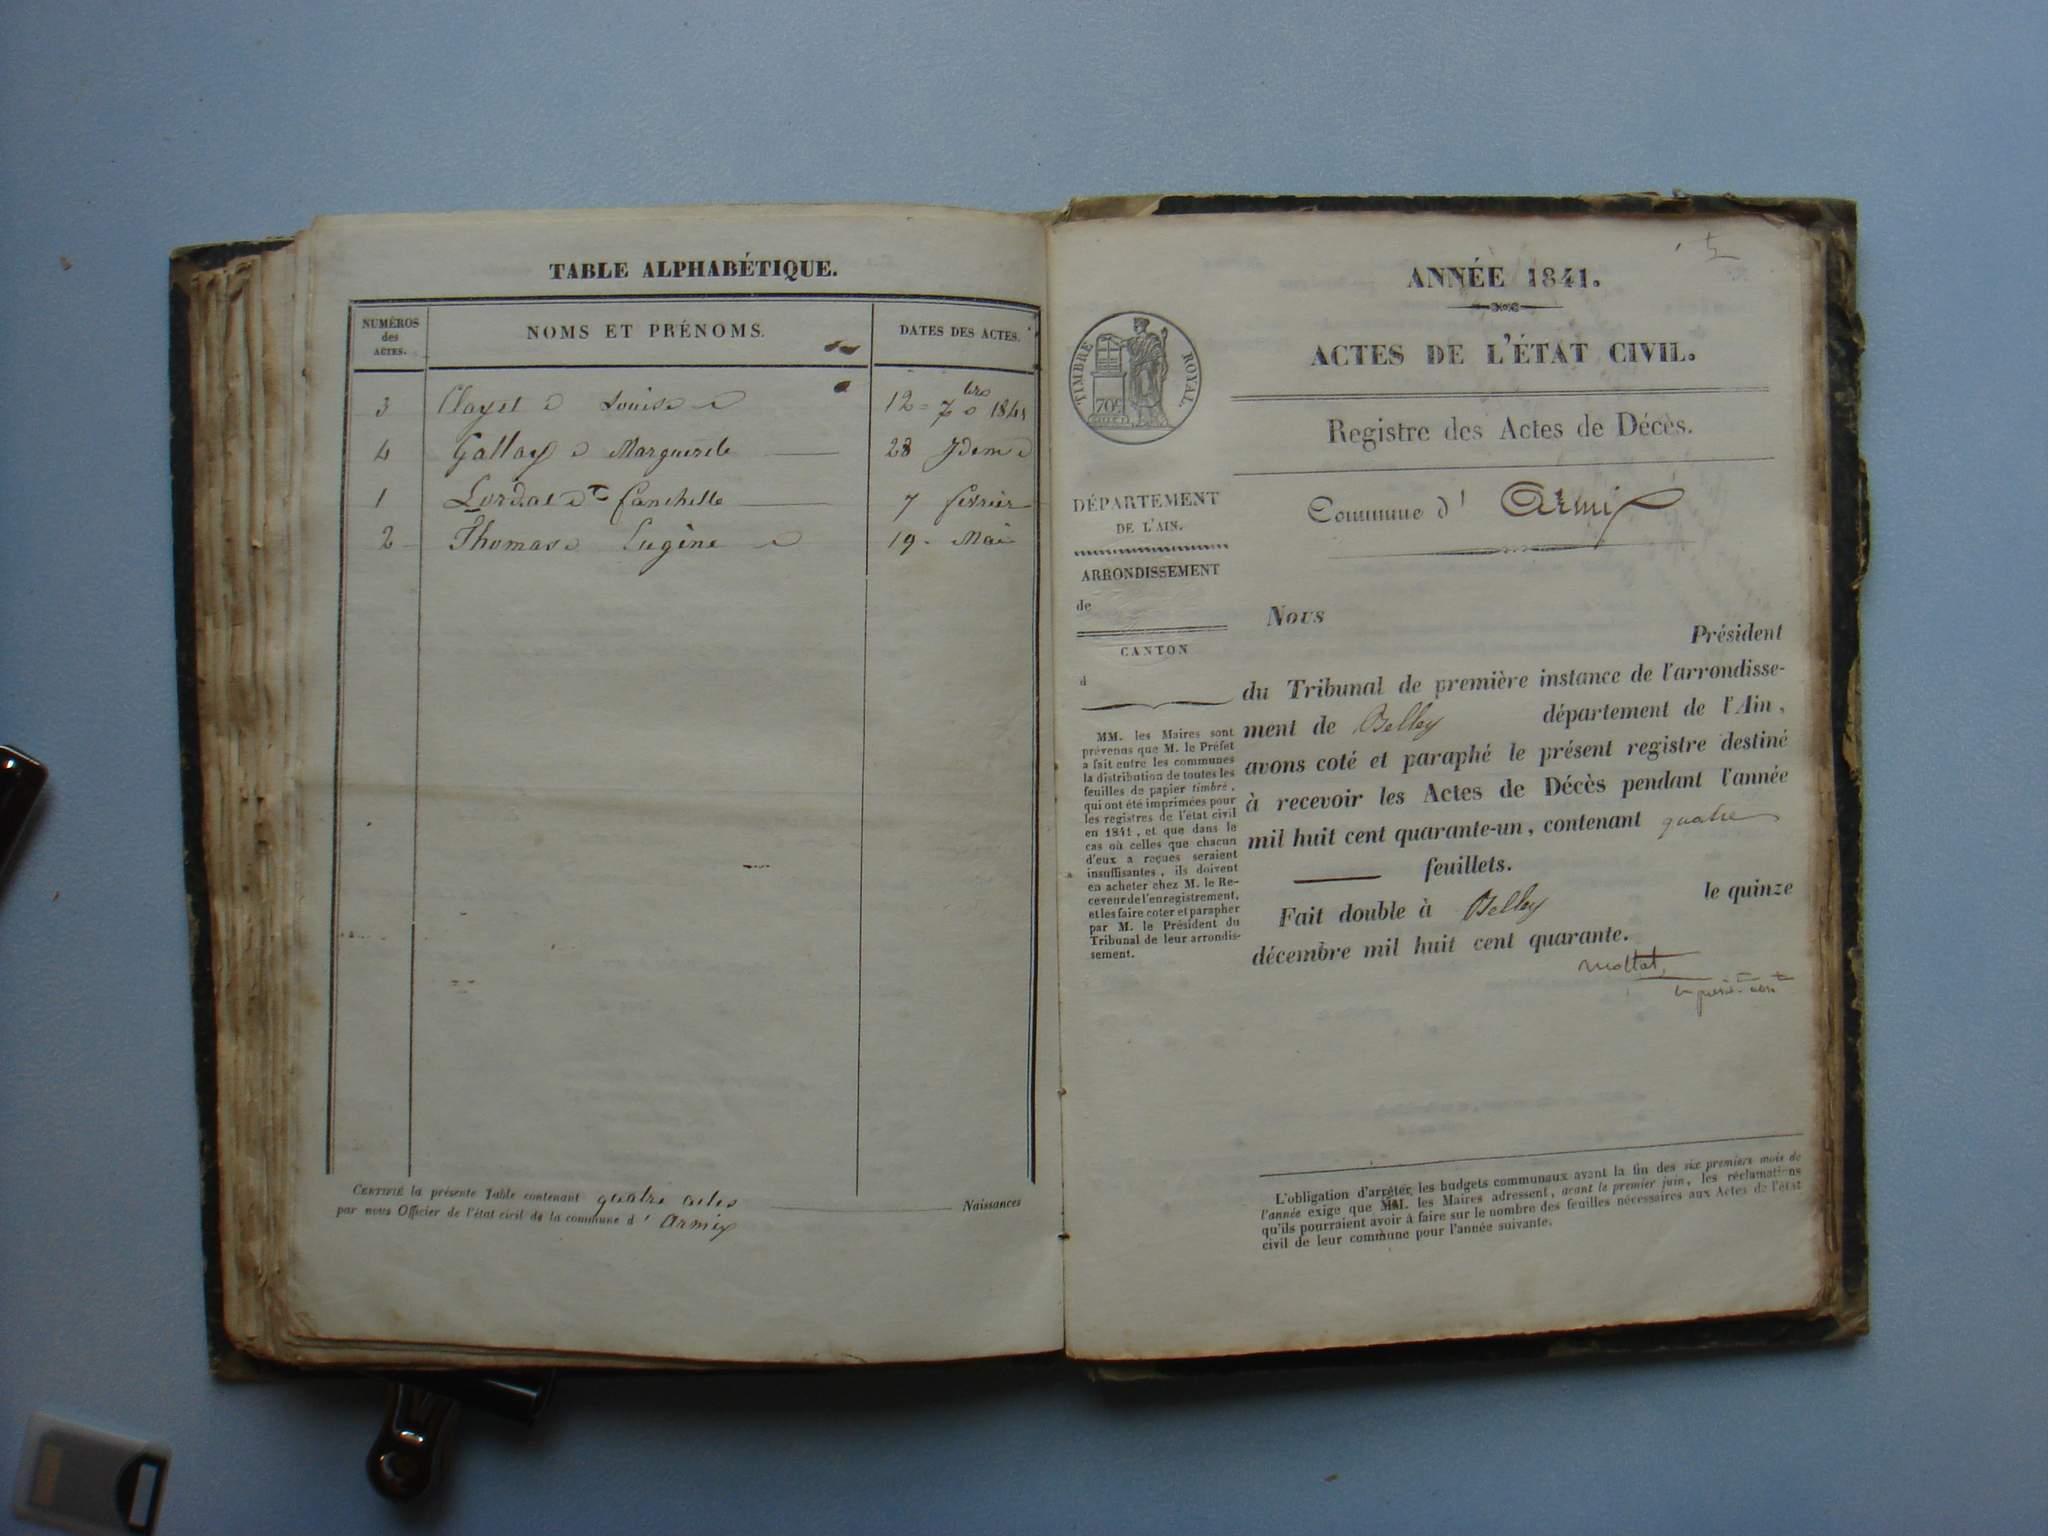 TABLE ALPHABÉTIQUE.
NUMÉROS
des
ACTES.
NOMS ET PRÉNOMS.
DATES DES ACTES.
3 Clayet Louise 12 = 7bre 1841
4 Gallay Marguerite 28 Idem
1 Lordat Fanchette 7 février
2 Thomas Eugène 19 Mai
CERTIFIÉ la présente Table contenant quatre actes Naissances
par nous Officier de l'état civil de la commune d' Armix
5
ANNÉE 1841.
ACTES DE L'ÉTAT CIVIL.
TIMBRE ROYAL.
70c
Registre des Actes de Décès.
Commune d' Armix
DÉPARTEMENT
DE L'AIN.
ARRONDISSEMENT
de
CANTON
d
MM. les Maires sont
prévenus que M. le Préfet
a fait entre les communes
la distribution de toutes les
feuilles de papier timbré,
qui ont été imprimées pour
les registres de l'état civil
en 1841, et que dans le
cas où celles que chacun
d'eux a reçues seraient
insuffisantes, ils doivent
en acheter chez M. le Re-
ceveur de l'enregistrement,
et les faire coter et parapher
par M. le Président du
Tribunal de leur arrondis-
sement.
Nous
Président
du Tribunal de première instance de l'arrondisse-
ment de Belley département de l'Ain,
avons coté et paraphé le présent registre destiné
à recevoir les Actes de Décès pendant l'année
mil huit cent quarante-un, contenant quatre
feuillets.
Fait double à Belley le quinze
décembre mil huit cent quarante.
Mottat,
L'obligation d'arrêter les budgets communaux avant la fin des six premiers mois de
l'année exige que MM. les Maires adressent, avant le premier juin, les réclamations
qu'ils pourraient avoir à faire sur le nombre des feuilles nécessaires aux Actes de l'état
civil de leur commune pour l'année suivante.